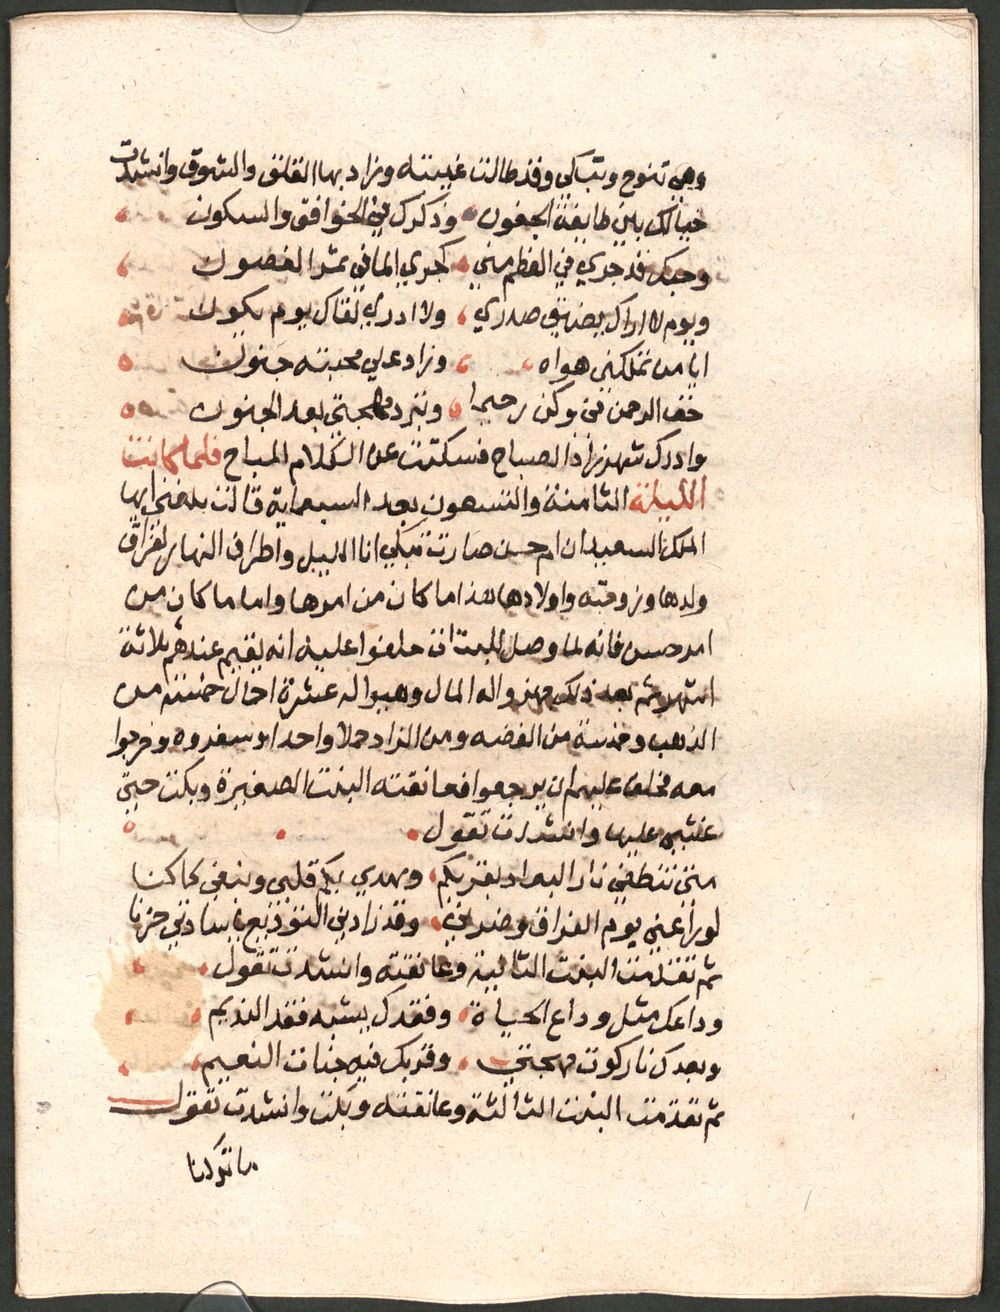 وهي تنوح وتبكي وقد طالت غيبته وزاد بها القلق والشوق وانشدت
خيالك بين طابقة الجفون وذكرك في الخوافق والسكون
وحبك قد جري في العظم مني كجري الما في ثمر الغصون
ويوم لا اراك يضيق صدري ولا ادري لقاك يوم يكون
ايا من تملكني هواه وزاد علي محبته جنون
خف الرحمن في وكن رحيما وترد مهجتي بعد الجنون
وادرك شهرزاد الصباح فسكتت عن الكلام المباح فلما كانت
الليلة الثامنة والتسعون بعد السبعماية قالت بلغني ايها
الملك السعيد ان ام حسن صارت تبكي انا الليل واطراف النهار لفراق
ولدها وزوقته واولادها هذا ما كان من امرها واما ما كان من
امر حسن فانه لما وصل للبنات حلفوا عليه انه يقيم عندهم ثلاثة
اشهر ثم بعد ذلك جهزوا له المال وهيوا له عشرة احمال خمسة من
الذهب وخمسة من الفضه ومن الزاد حملا واحدا وسفروه وخرجوا
معه فحلف عليهم ان يرجعوا فعانقته البنت الصغيرة وبكت حتي
غشي عليها وانشدت تقول
متي تنطفي نار البعاد بقربكم ويهدي بكم قلبي ونبقي كما كنا
لو راعني يوم الفراق وضرني وقد زادني التوذيع يا سادتي حزنا
ثم تقدمت البنت الثانية وعانقته وانشدت تقول
وداعك مثل وداع الحياة وفقدك يشبه فقد النديم
وبعدك نار كوت مهجتي وقربك فيه جنات النعيم
ثم تقدمت البنت الثالثة وعانقته وبكت وانشدت تقول
ما تركنا